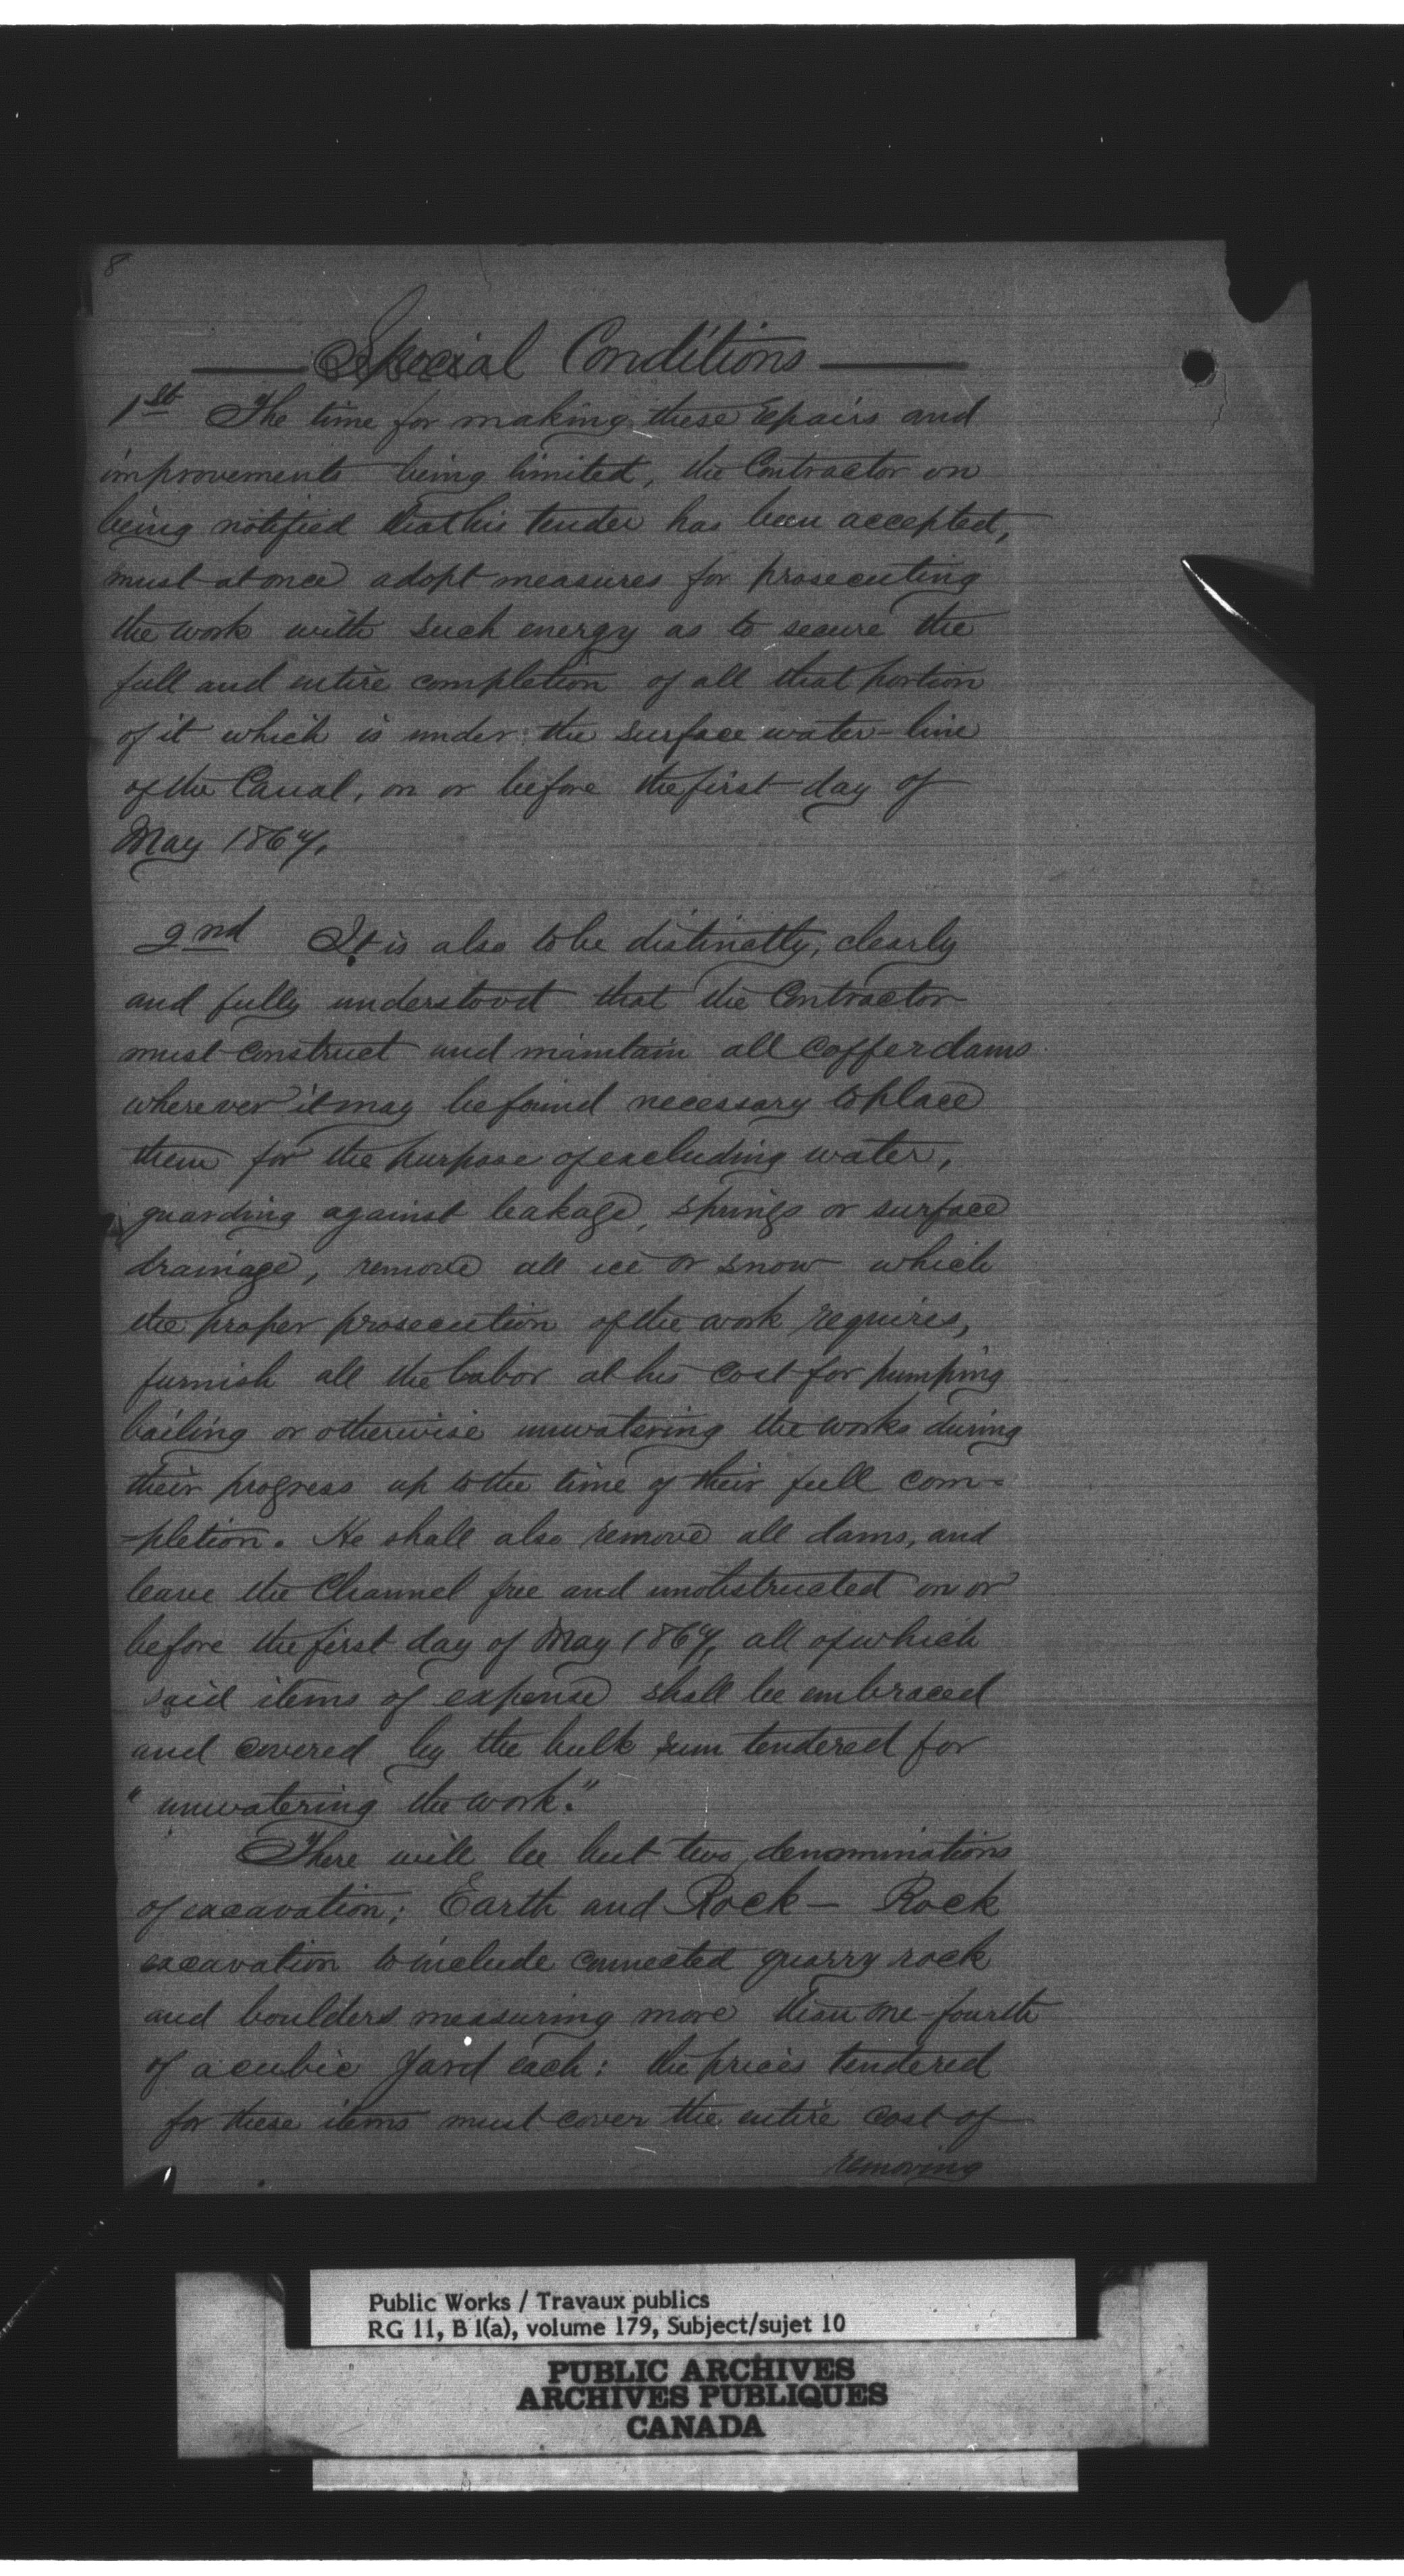 8
Special Conditions
1st The time for making these repairs and
improvements being limited, the Contractor on
being notified that his tender has been accepted,
must at once adopt measures for prosecuting
the work with such energy as to secure the
full and entire completion of all that portion
of it which is under the surface water-line
of the Canal, on or before the first day of
May 1867.
2nd It is also to be distinctly, clearly
and fully understood that the Contractor
must construct and maintain all Cofferdams
wherever it may be found necessary to place
them for the purpose of excluding water,
guarding against leakage, springs or surface
drainage, remove all ice or snow which
the proper prosecution of the work requires,
furnish all the labor at his cost for pumping
bailing or otherwise unwatering the works during
their progress up to the time of their full com-
-pletion. He shall also remove all dams, and
leave the Channel free and unobstructed on or
before the first day of May 1867, all of which
said items of expense shall be embraced
and covered by the bulk sum tendered for
"unwatering the work."
There will be but two denominations
of excavation; Earth and Rock — Rock
excavation to include connected quarry rock
and boulders measuring more than one-fourth
of a cubic yard each: the prices tendered
for these items must cover the entire cost of
removing
Public Works / Travaux publics
RG 11, B 1(a), volume 179, Subject/sujet 10
PUBLIC ARCHIVES
ARCHIVES PUBLIQUES
CANADA